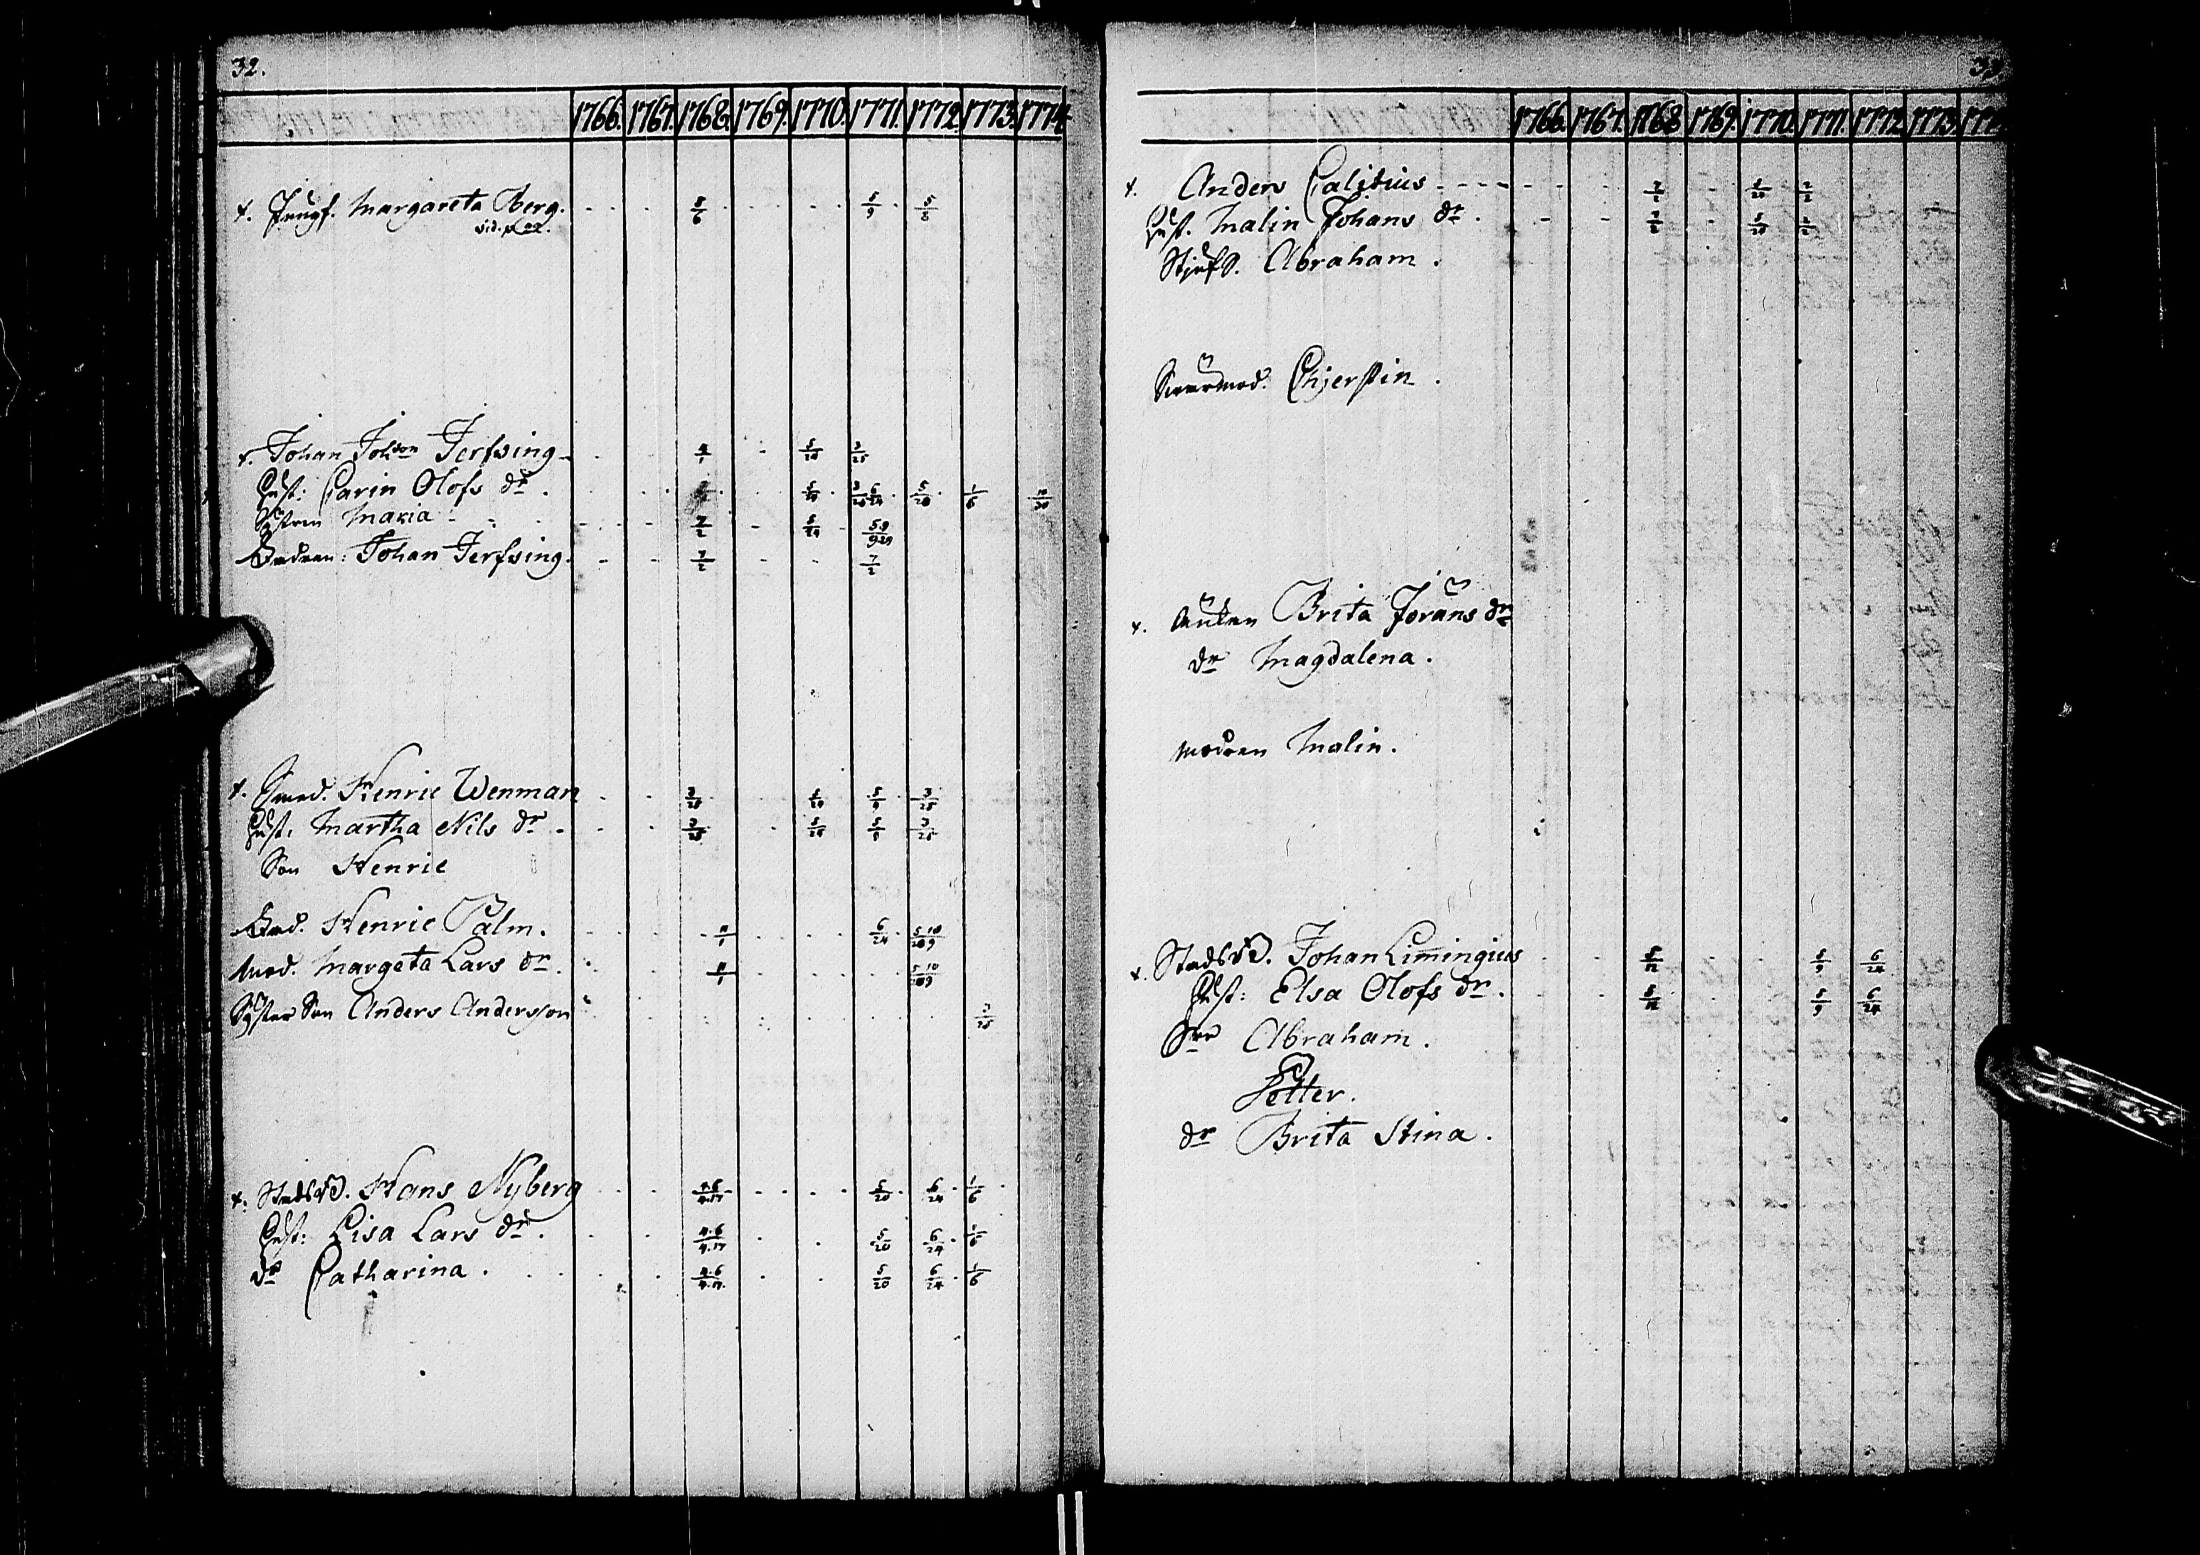 32.
1766. 1767. 1768. 1769. 1770. 1771. 1772. 1773. 1774.
+. Jungf. Margareta Berg. 5/6 5/9 5/8
vid. pag.
+. Johan Johson Jerfsing 4/1 5/20 3/25
Hust: Carin Olofs dr. 5/20 3/25 6/24 5/20 1/6 10/30
Systren Maria 7/2 5/20 5/9 9/29
Brodren: Johan Jerfsing 7/2 7/2
+. Smed. Henric Wenman 3/25 5/20 5/9 3/25
Hust: Martha Nils dr. 3/25 5/20 5/9 3/25
Son Henric
Brod. Henric Palm. 11/1 6/24 5/20 10/9
Mod. Margeta Lars dr. 11/1 5/20 10/9
Syster Son Anders Andersson 3/25
+. Stads Hans Nyberg 4.6/4.17 5/20 6/24 1/6
Hust: Lisa Lars dr. 4.6/4.17 5/20 6/24 1/6
dr Catharina. 4.6/4.17 5/20 6/24 1/6
33
1766. 1767. 1768 1769. 1770. 1771. 1772 1773. 177
+. Anders Calitius 7/2 5/20 7/2
Hust. Malin Johans dr. 7/2 5/20 7/2
Stjufs. Abraham.
Svermod: Chjerstin.
+. Enkan Brita Jörans dr
dr Magdalena.
Modren Malin.
+. Stads Johan Limingius 5/12 5/9 6/24
Hust: Elsa Olofs dr. 5/12 5/9 6/24
Son Abraham.
Petter.
dr Brita Stina.